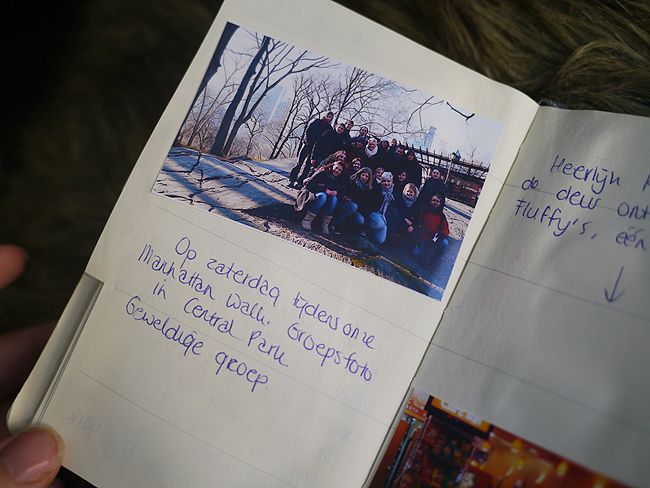 Op zaterdag tijdens onze
Manhattan Walk. Groepsfoto
in Central Park
Geweldige groep.
Heerlijk
de deur ont
Fluffy's, één